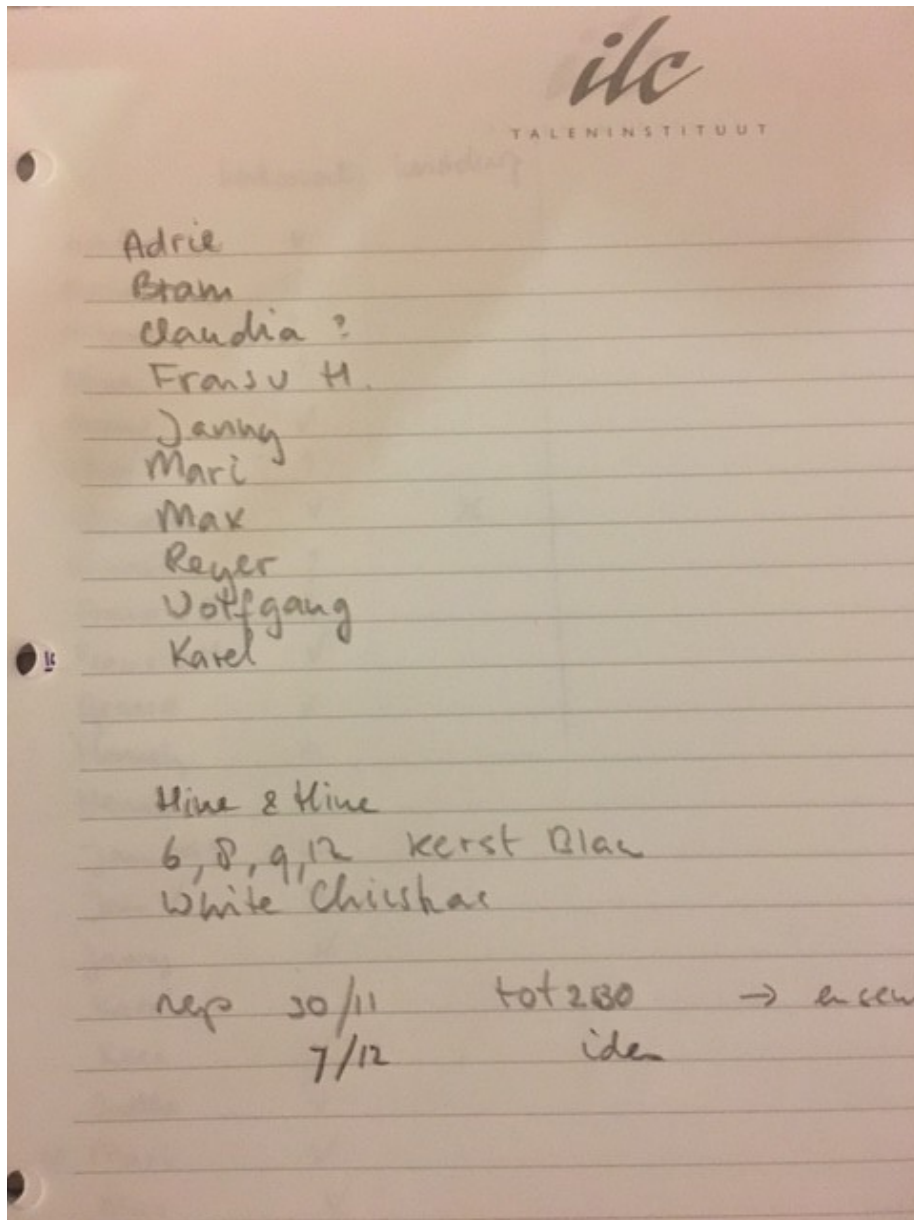 ilc
TALENINSTITUUT
Adrie
Bram
Claudia ?
Frans v H.
Janny
Mari
Max
Reyer
Wolfgang
Karel
Hine & Hine
6, 8, 9, 12 Kerst Blau
White
rep 30/11 tot 2130 →
7/12 idem